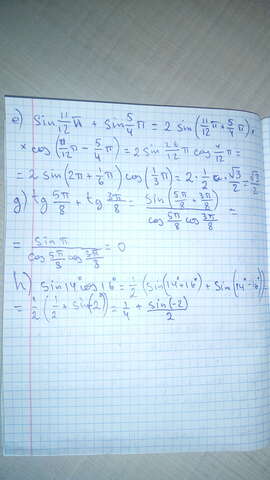 e) sin 11/12 π + sin 5/4 π = 2 sin (11/12 π + 5/4 π) ·
× cos (11/12 π - 5/4 π) = 2 sin 26/12 π cos 4/12 π =
= 2 sin (2π + 1/6 π) cos (1/3 π) = 2 · 1/2 · √3/2 = √3/2
g) tg 5π/8 + tg 3π/8 = sin (5π/8 + 3π/8) / cos 5π/8 cos 3π/8 =
= sin π / cos 5π/8 cos 3π/8 = 0
h) sin 14° cos 16° = 1/2 (sin (14° + 16°) + sin (14° - 16°)) =
= 1/2 (1/2 + sin -2°) = 1/4 + sin(-2)/2